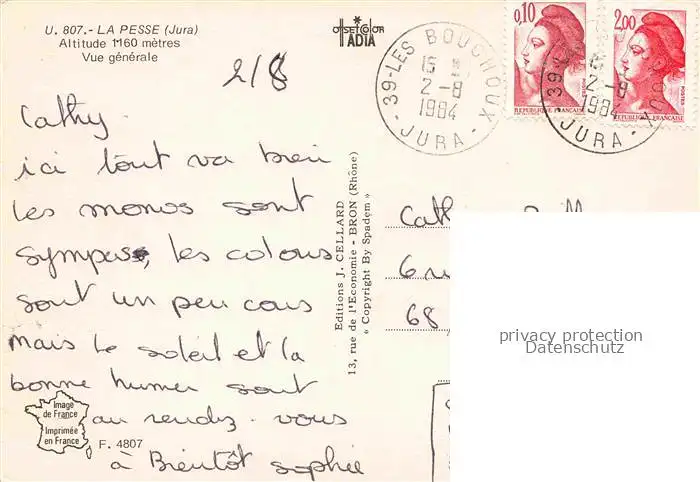 U. 807.- LA PESSE (Jura)
Altitude 1160 mètres
Vue générale
OFFSETCOLOR
ADIA
39-LES BOUCHOUX
15
2-8
1984
JURA
0,10
POSTES
REPUBLIQUE FRANÇAISE
2,00
POSTES
REPUBLIQUE FRANÇAISE
39
2-8
1984
JURA
2/8
Cathy.
ici tout va bien
les monos sont
sympas, les colons
sont un peu cons
mais le soleil et la
bonne humer sont
au rendez-vous
à Bientôt sophie
Editions J. CELLARD
13, rue de l'Economie - BRON (Rhône)
« Copyright By Spadem »
Cath
6
68
privacy protection
Datenschutz
Image
de France
Imprimée
en France
F. 4807